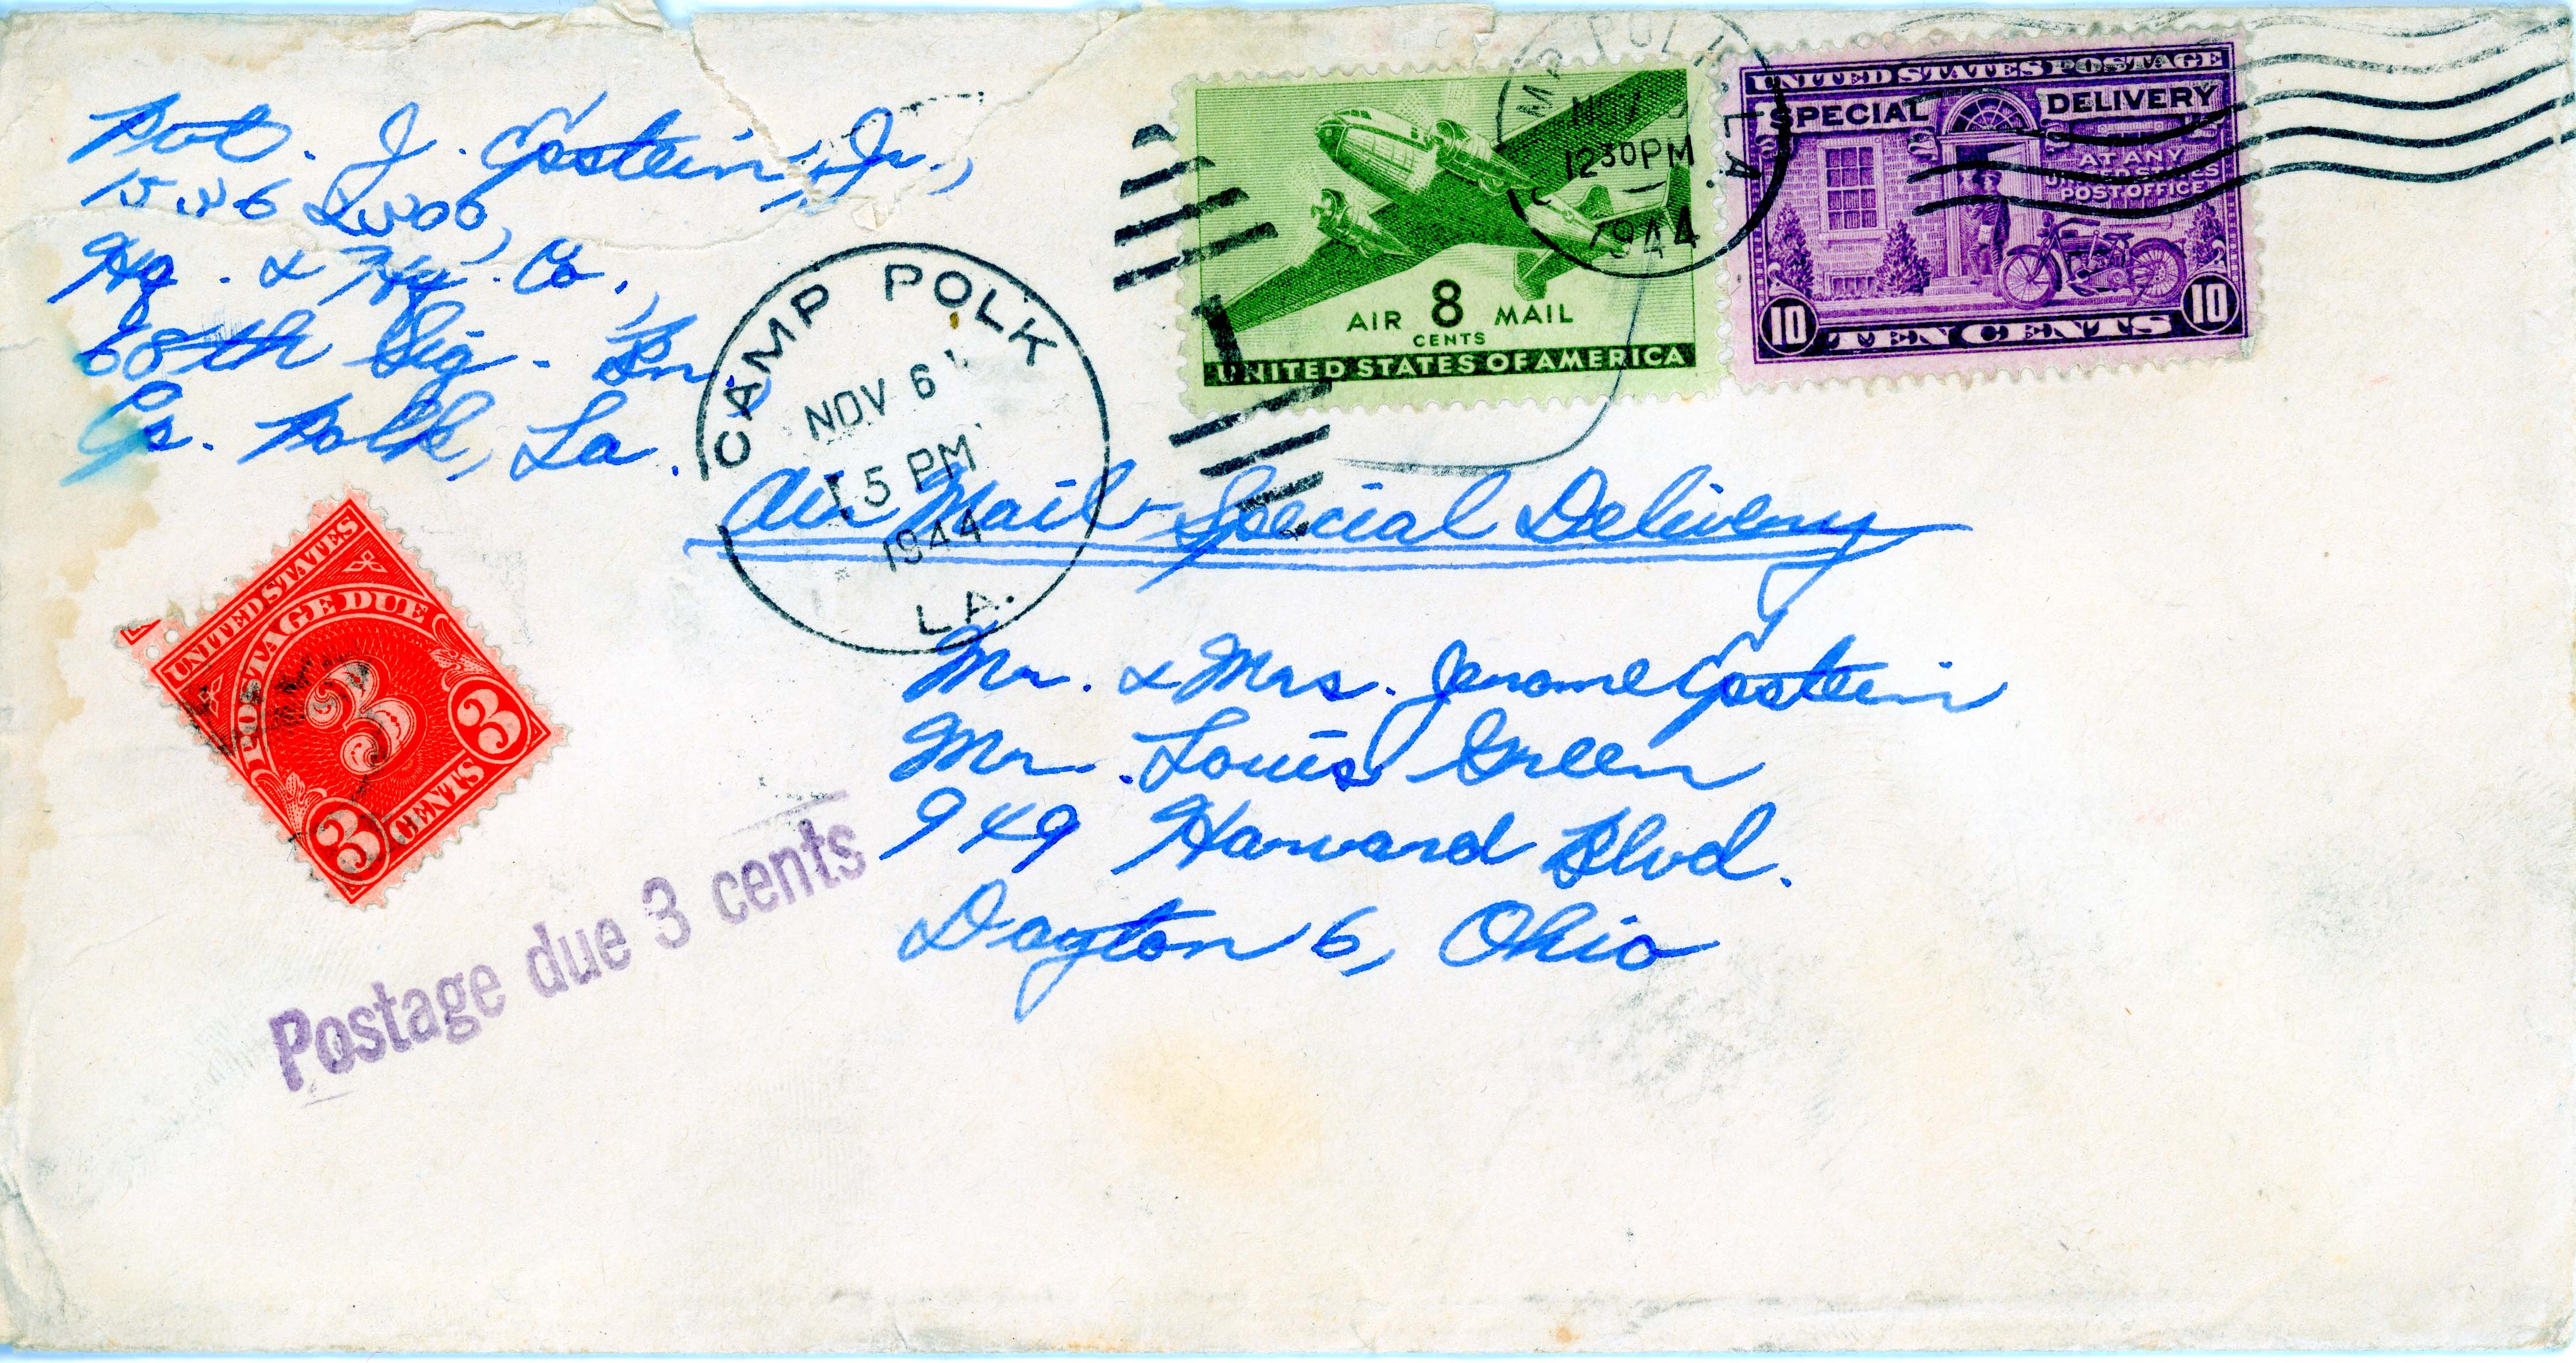 Pvt. J. Epstein, Jr.,
Hq. & Hq. Co.,
68th Sig. Bn.
Cp. Polk, La.
CAMP POLK
NOV 6
5 PM
1944
LA.
AIR 8 MAIL
CENTS
UNITED STATES OF AMERICA
MP POLK LA.
NOV
12 30 PM
1944
UNITED STATES POSTAGE
SPECIAL DELIVERY
AT ANY
UNITED STATES
POST OFFICE
10 10
TEN CENTS
Air Mail - Special Delivery
UNITED STATES
POSTAGE DUE
3
3
3
CENTS
Mr. & Mrs. Jerome Epstein
Mr. Louis Green
949 Harvard Blvd.
Dayton 6, Ohio
Postage due 3 cents